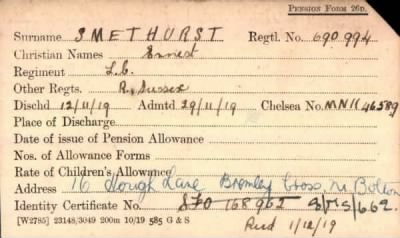 PENSION FORM 26D.
Surname SMETHURST Regtl. No. 690994
Christian Names Ernest
Regiment L.C.
Other Regts. R. Sussex
Dischd 12/11/19 Admtd 29/11/19 Chelsea No. MN11 46589
Place of Discharge
Date of issue of Pension Allowance
Nos. of Allowance Forms
Rate of Children's Allowance
Address 16 Hough Lane Bromley Cross, Nr Bolton
Identity Certificate No. 168962 /662.
[W2785] 23148/3049 200m 10/19 585 G & S
Recd 1/12/19